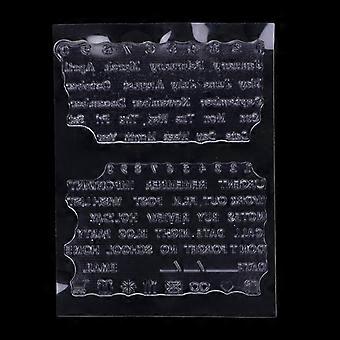 January February March April
May June July August October
September November December
Sun Mon Tue Wed Thu Fri Sat
Date Day Week Month Year
URGENT REMEMBER IMPORTANT
WORK OUT POST WISH LIST
NOTES BUY REVIEW HOLIDAY
CALL DATE NIGHT BLOG PARTY
DON'T FORGET NO SCHOOL HOME
DATE / / EMAIL